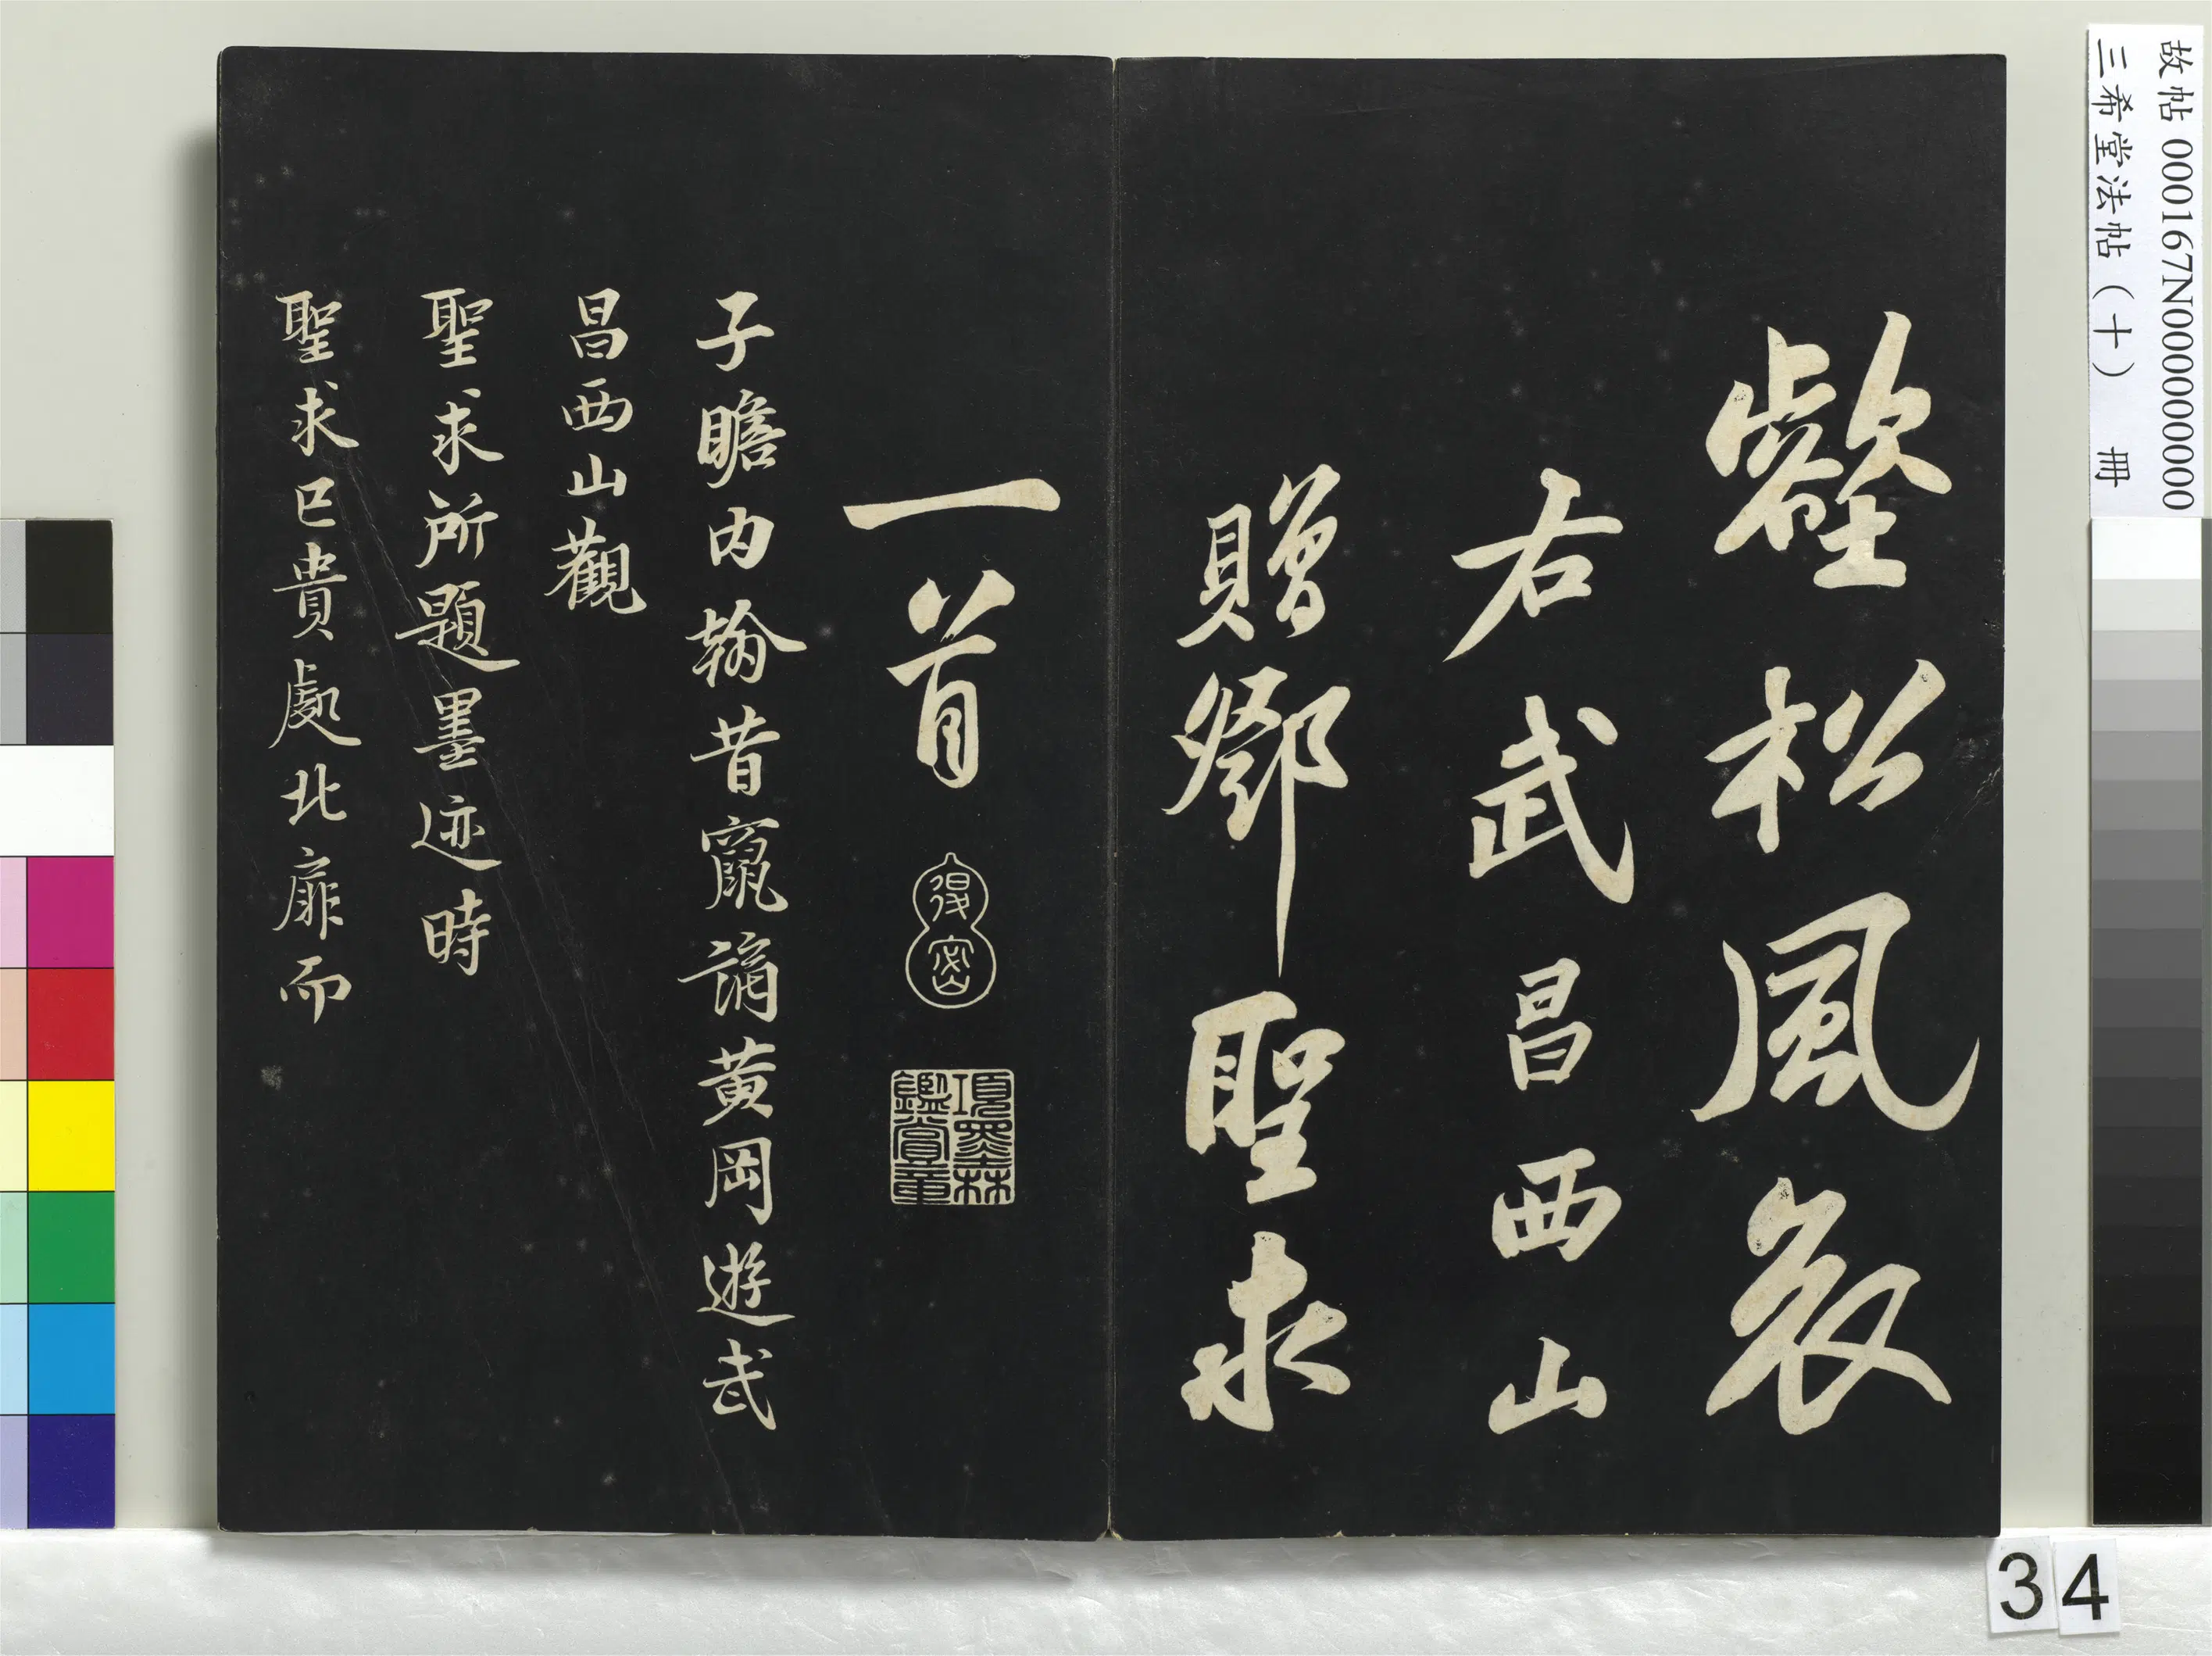 故帖 000167N000000000
三希堂法帖（十） 冊
壑松風哀
右武昌西山
贈鄧聖求
一首
得密
項墨林
鑑賞章
子瞻内翰昔竄謫黄岡遊武
昌西山觀
聖求所題墨迹時
聖求已貴處北扉而
34